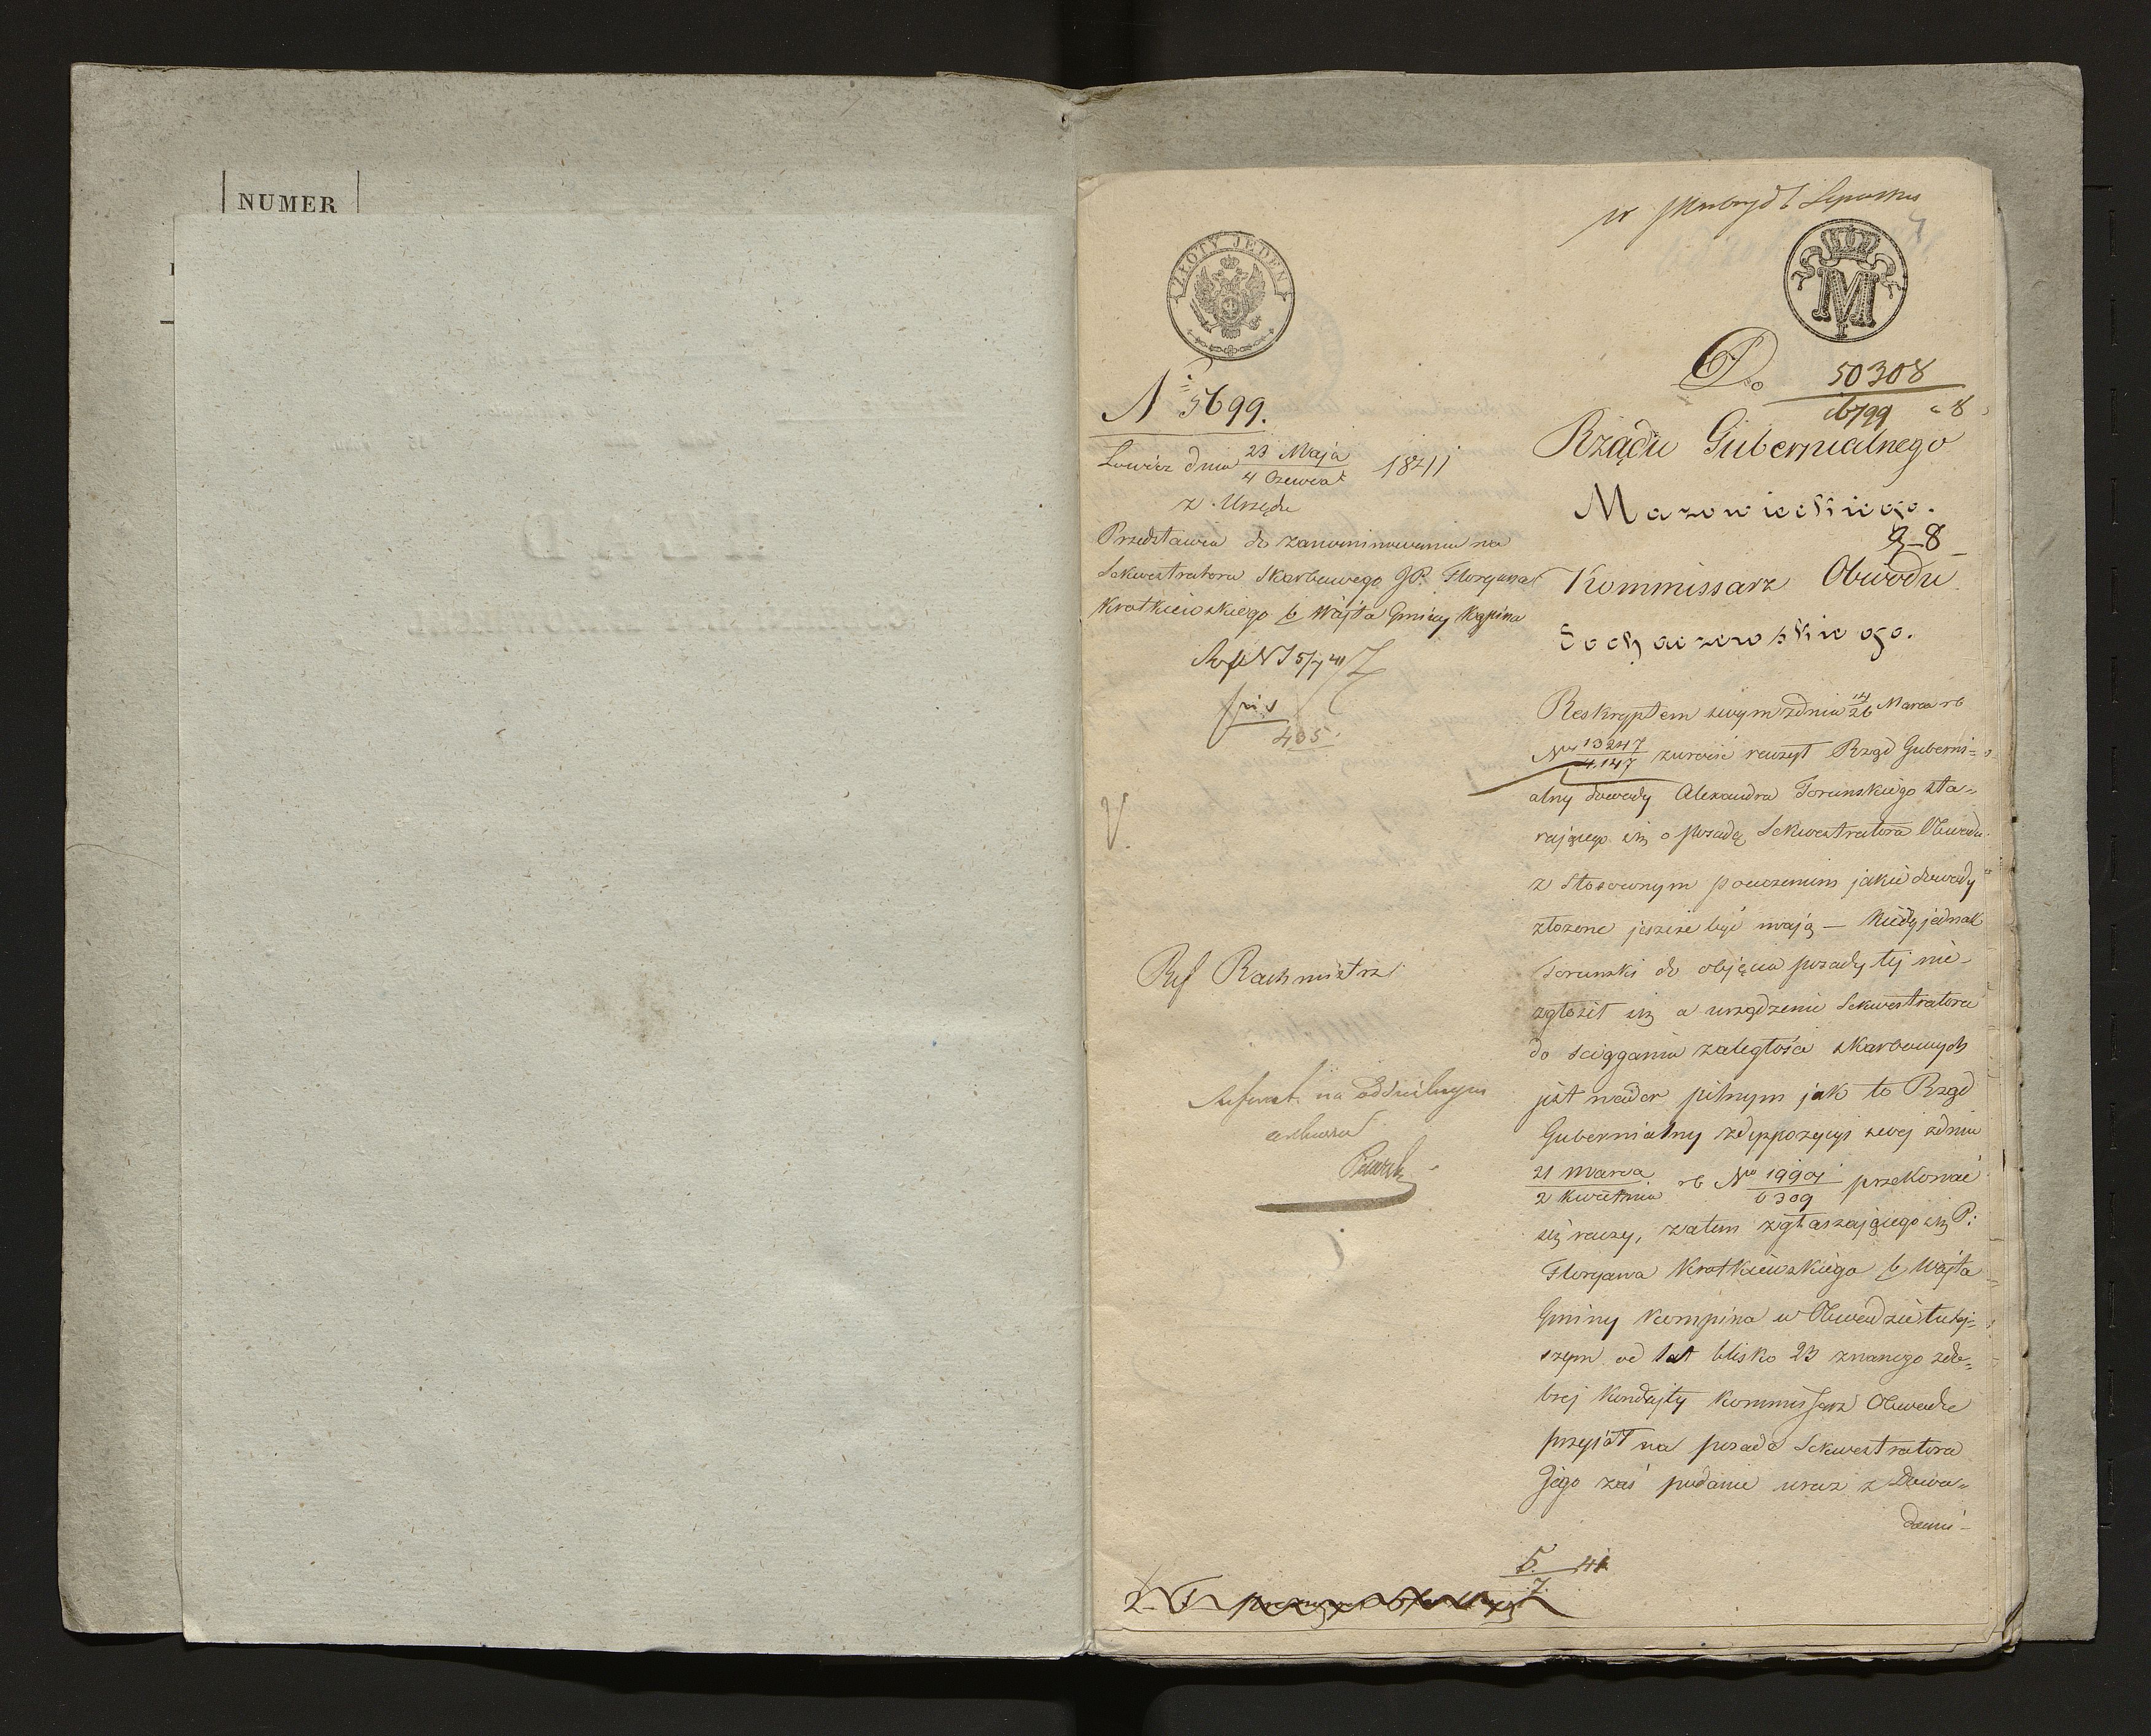 NUMER
ZŁOTY JEDEN
Nº 5699.
Łowicz dnia 23 Maja / 4 Czerwca 1841
z Urzędu
Przedstawia do zanominowania na
Sekwestratora Skarbowego JP. Floryana
Kratkiewskiego b Wójta Gminy Kąpina
405
Ref Rachmistrz
Referat na oddzielnym
arkuszu
Do
50308
16799
Rządu Gubernialnego
Mazowieckiego.
Kommissarz Obwodu
Sochaczewskiego.
Reskryptem swym zdnia 14/26 Marca rb
Nro 13247/4.147 zwrócić raczył Rząd Guberni=
alny dowody Alexandra Torunskiego sta=
rającego się o posadę Sekwestratora Obwodu
z stosownym pouczeniem jakie dowody
złożone jeszcze być mają — Kiedy jednak
Torunski do objęcia posady tej nie
zgłosił się a urządzenie Sekwestratora
do sciągania zaległości skarbowych
jest nader pilnym jak to Rząd
Gubernialny z dyppozycyi swej zdnia
21 Marca / 2 Kwietnia rb Nro 19901/6309 przekonać
się raczy, zatem zgłaszającego się P:
Floryana Kratkiewskiego b Wójta
Gminy Kompina w Obwodzie tutej=
szym od lat blisko 23 znanego zdo=
brej kondujty Kommissarz Obwodu
przyjął na posadę Sekwestratora
Jego zaś podanie wraz z Dowo=
dami